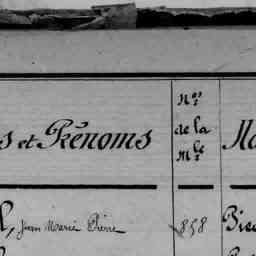 s et Prénoms
Nos
de la
Mle
Jean Marie Pierre
858